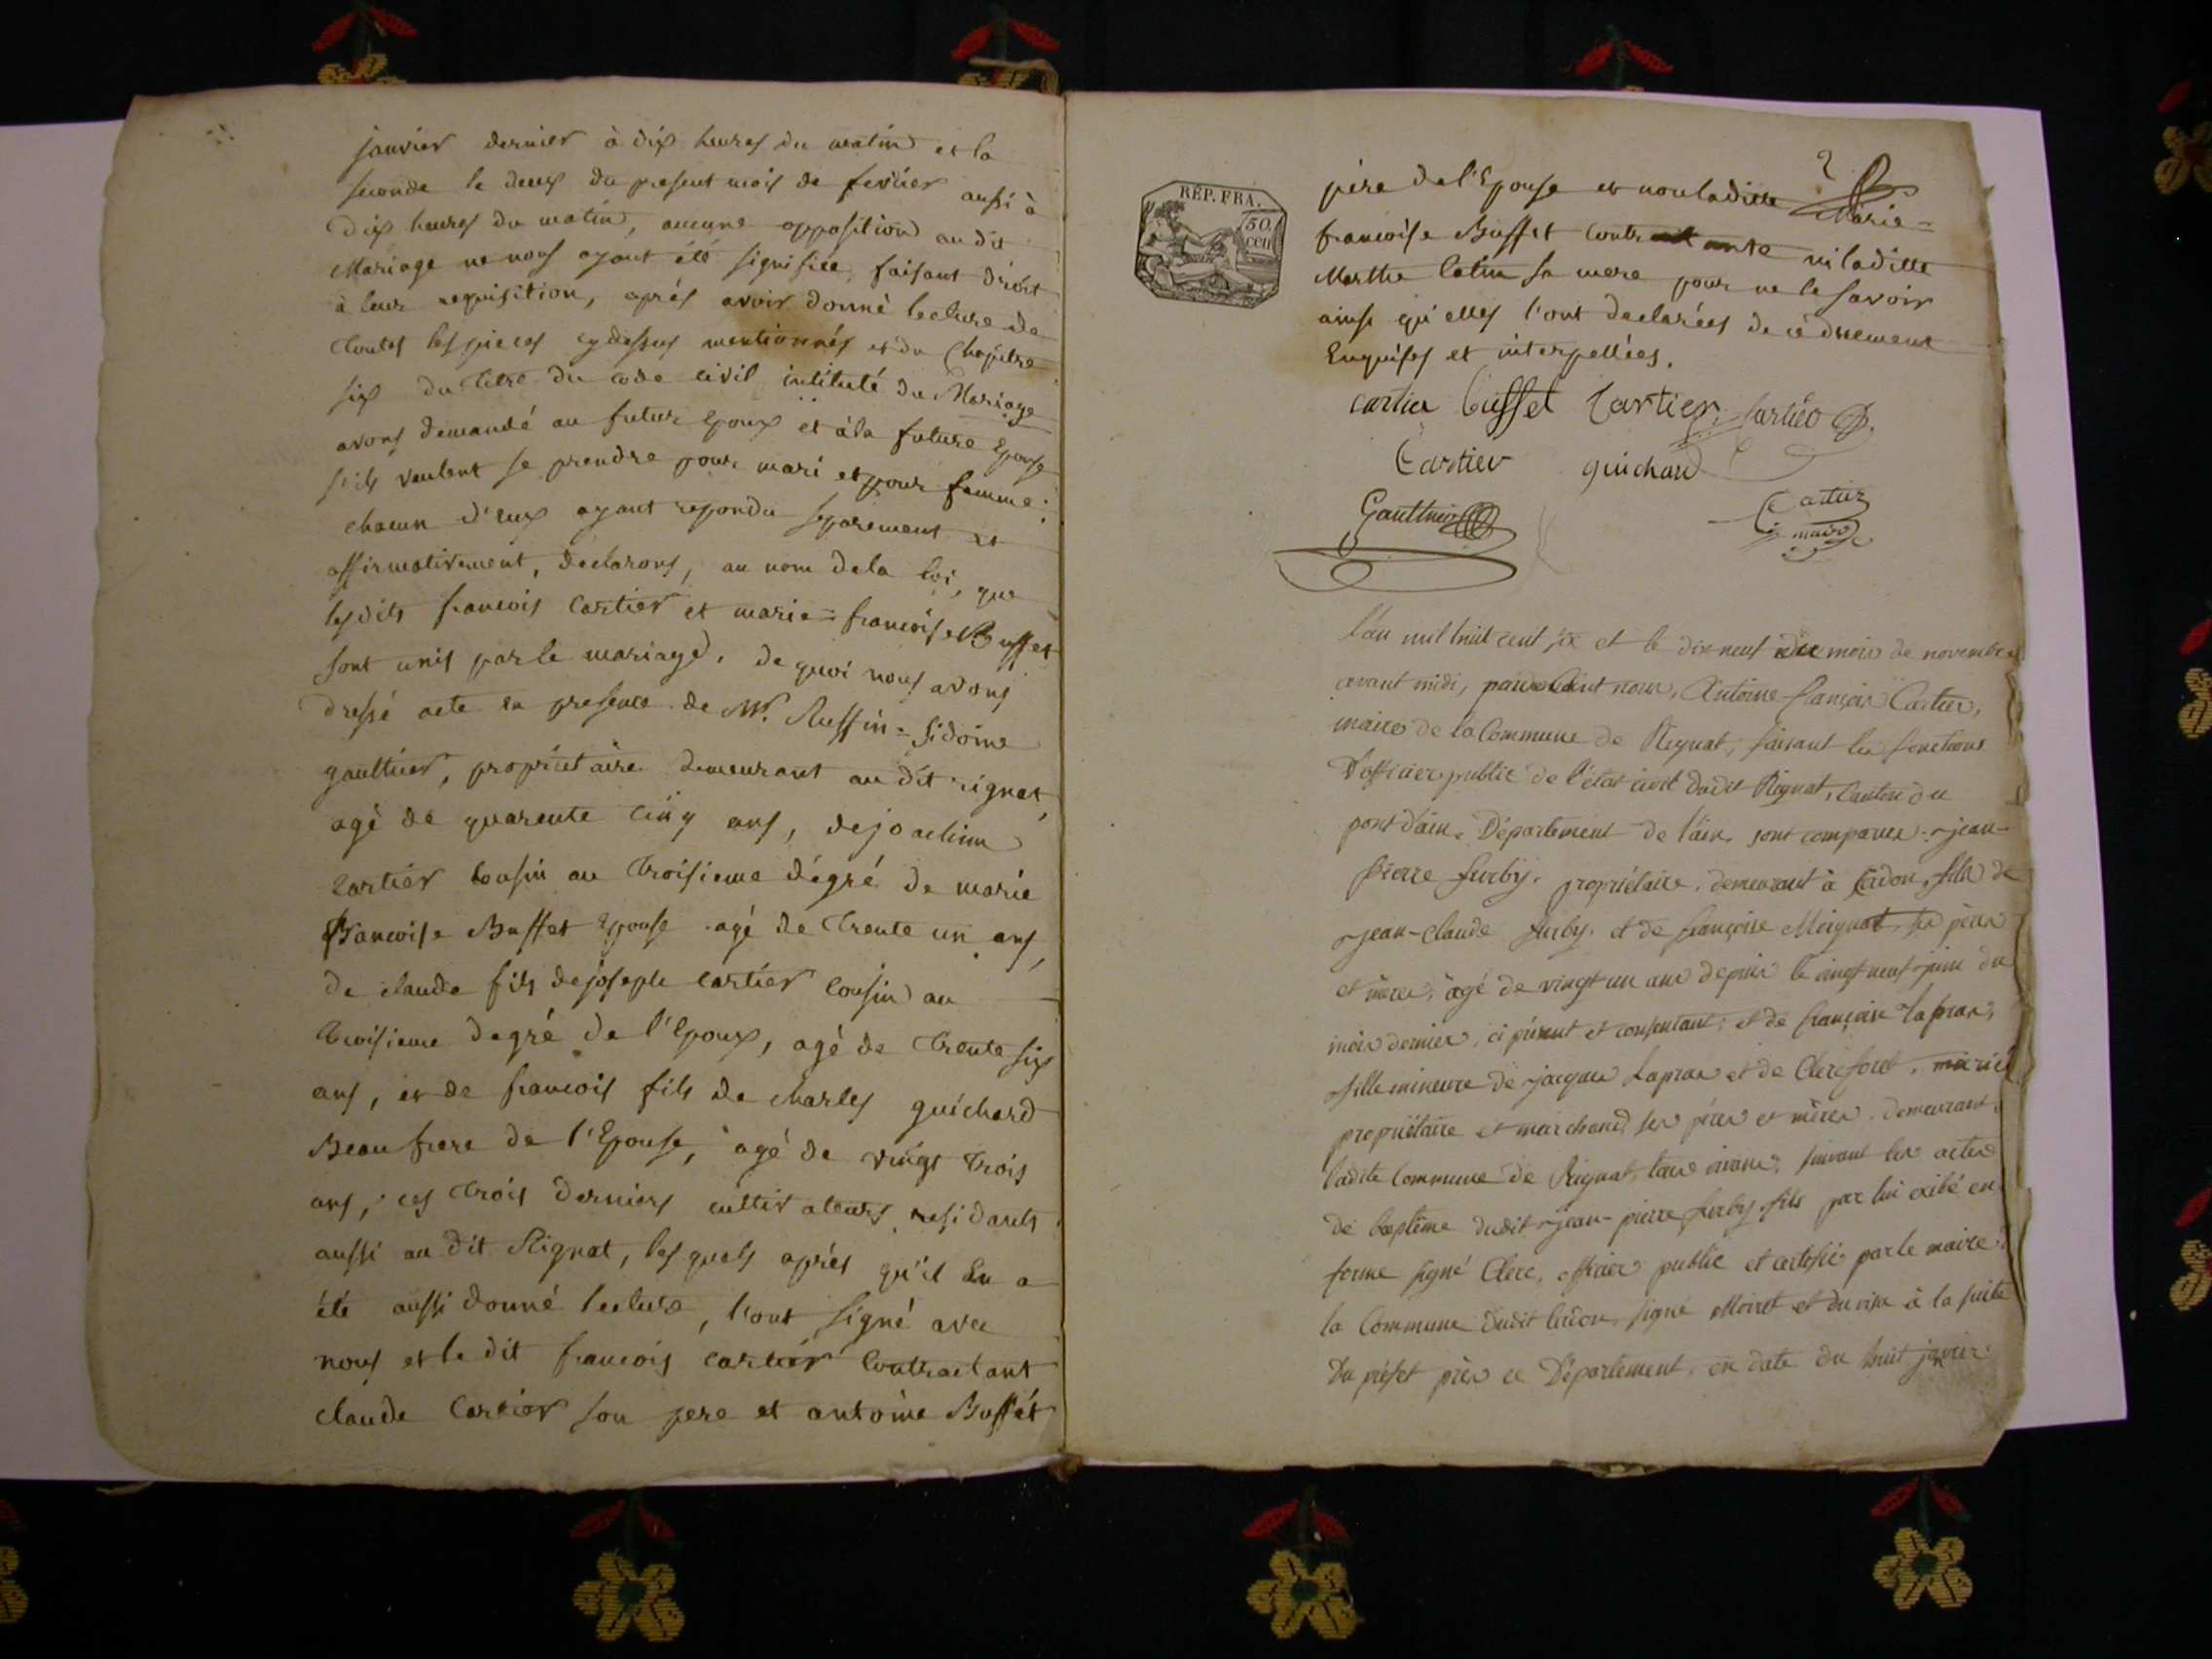 janvier dernier à dix heures du matin et la
seconde le deux du present mois de fevrier aussi à
dix heures du matin, aucune opposition audit
Mariage ne nous ayant été signifiée, faisant droit
à leur requisition, aprés avoir donné lecture de
toutes les pieces cydessus mentionnés et du Chapitre
six du titre du code civil intitulé du Mariage
avons demandé au futur epoux et àla future Epouse
s'ils veulent se prendre pour mari et pour femme:
chacun d'eux ayant repondu séparement et
affirmativement, declarons, au nom dela loi, que
lesdits francois Cartier et marie=francoise Buffet
sont unis par le mariage. de quoi nous avons
dressé acte en presence de Mr. Ruffin=sidoine
gaulthier, propriétaire demeurant au dit rignat,
agé de quarente cinq ans, de joachim
Cartier cousin au troisieme dégré de marie
francoise Buffet Epouse agé de trente un ans,
de claude fils de joseph cartier cousin au
troisieme degré de l'Epoux, agé de trente six
ans, et de francois fils de charles guichard
Beau frere de l'Epouse, agé de vingt trois
ans, ces trois derniers cultivateurs residants
aussi au dit Rignat, les quels aprés qu'il En a
été aussi donné lecture, l'ont signé avec
nous et le dit francois cartier Contractant
claude Cartier son pere et antoine Buffét
2
RÉP. FRA.
50
cen
pére de l'Epouse et non ladite Marie=
francoise Buffet contractante ni laditte
Marthe sa mere pour ne le savoir
ainsi qu'elles l'ont declarées de ce duement
Enquises et interpellées.
cartier buffet Cartier
Cartier guichard
Gaulthier Cartier
maire
l'an mil huit cent six et le dix neuf du mois de novembre
avant midi, pardevant nous, Antoine-françois Cartier,
maire de la Commune de Rignat, faisant les fonctions
D'officier public de l'état civil dudit Rignat, Canton du
pont d'ain. Département de l'ain. sont comparus. jean-
pierre furby. propriétaire. demeurant à Cerdon, fils de
jean-claude furby. et de françoise Moignat, ses pères
et mères, âgé de vingt un ans depuis le vingt neuf juin du
mois dernier, ci présent et consentant; et de françoise Lapras,
fille mineure de jacques Lapras et de Clerc foret, mariés
propriétaire et marchand, ses pères et mères. demeurant,
ladite Commune de Rignat, tous vivans, suivant les actes
de baptême dudit jean-pierre furby fils par lui exibé en
forme signé Clerc, officier public et certifié par le maire
la Commune dudit Cerdon, signé Moiret et du visa à la suite
Du préfet près ce Département, en date du huit janvier